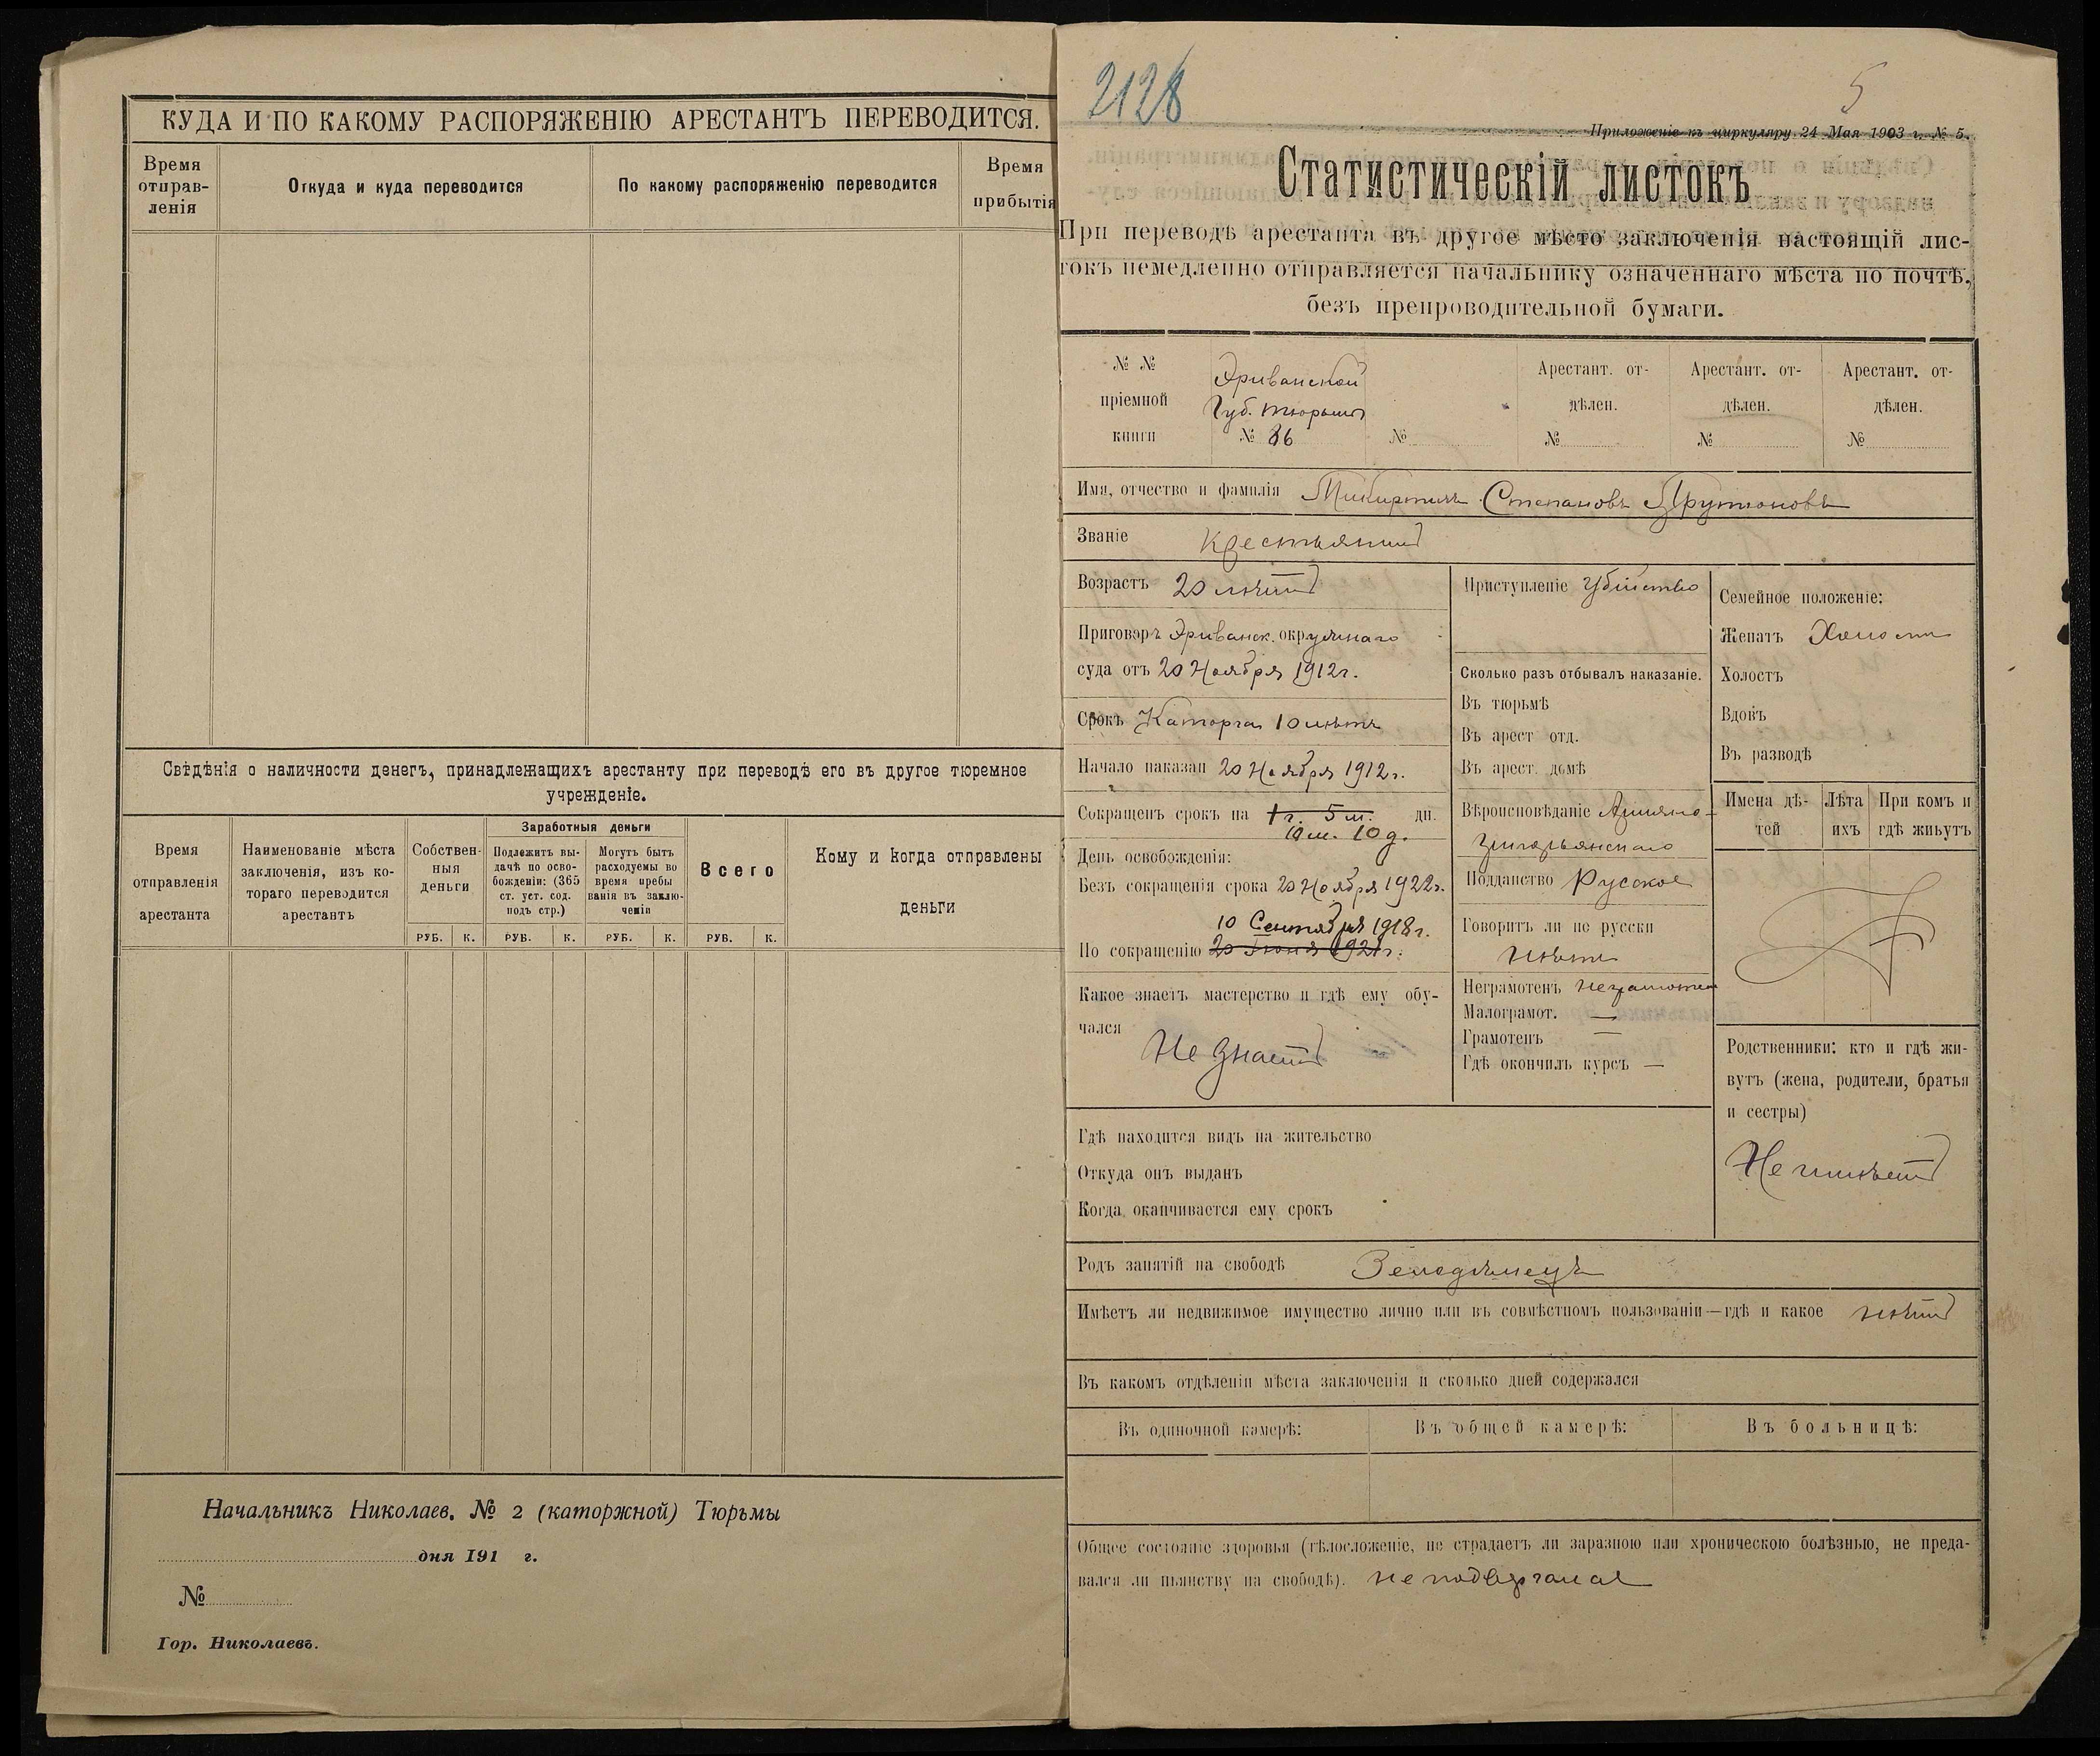 КУДА И ПО КАКОМУ РАСПОРЯЖЕНІЮ АРЕСТАНТЪ ПЕРЕВОДИТСЯ.
Время отправ-ленія
Откуда и куда переводится
По какому распоряженію переводится
Время прибытія
Свѣдѣнія о наличности денегъ, принадлежащихъ арестанту при переводѣ его въ другое тюремное
учрежденіе.
Время отправленія арестанта
Наименованіе мѣста заключенія, изъ ко-тораго переводится арестантъ
Собствен-ныя деньги
Заработныя деньги
Подлежитъ вы-дачѣ по осво-божденіи: (365 ст. уст. сод. подъ стр.)
Могутъ быть расходуемы во время пребы ванія въ заклю-ченіи
Всего
Кому и когда отправлены деньги
РУБ. К. РУБ. К. РУБ. К. РУБ. К.
Начальникъ Николаев. № 2 (каторжной) Тюрьмы
дня 191 г.
№
Гор. Николаевъ.
2128
5
Приложеніе къ циркуляру 24 Мая 1903 г. № 5.
Статистическій листокъ
При переводѣ арестанта въ другое мѣсто заключенія настоящій лис-
токъ немедленно отправляется начальнику означеннаго мѣста по почтѣ,
безъ препроводительной бумаги.
№ № пріемной книги
Эриванской
Губ. тюрьмы
№ 86
№
Арестант. от-дѣлен. №
Арестант. от-дѣлен. №
Арестант. от-дѣлен. №
Имя, отчество и фамилія Степановъ Арутюновъ
Званіе Крестьянинъ
Возрастъ 20 лѣтъ
Приговоръ Эриванск. окружнаго
суда отъ 20 Ноября 1912г.
Срокъ Каторга 10 лѣтъ
Начало наказан 20 Ноября 1912г.
Сокращенъ срокъ на 1 г. 5 м. дн.
10 д.
День освобожденія:
Безъ сокращенія срока 20 Ноября 1922г.
10 Сентября 1918г.
По сокращенію 20 Іюня 1921г.
Какое знаетъ мастерство и гдѣ ему обу-
чался
Не знаетъ
Приступленіе Убійство
Сколько разъ отбывалъ наказаніе.
Въ тюрьмѣ
Въ арест отд.
Въ арест. домѣ
Вѣроисповѣданіе Армяно-
григорьянскаго
Подданство Русское
Говоритъ ли по русски
нѣтъ
Неграмотенъ неграмотен
Малограмот. —
Грамотенъ —
Гдѣ окончилъ курсъ —
Семейное положеніе:
Женатъ Холостъ
Холостъ
Вдовъ
Въ разводѣ
Имена дѣ-тей
Лѣта ихъ
При комъ и гдѣ живутъ
Родственники: кто и гдѣ жи-
вутъ (жена, родители, братья
и сестры)
Не имѣетъ
Гдѣ находится видъ на жительство
Откуда онъ выданъ
Когда оканчивается ему срокъ
Родъ занятій на свободѣ Земледѣлецъ
Имѣетъ ли недвижимое имущество лично или въ совмѣстномъ пользованіи—гдѣ и какое нѣтъ
Въ какомъ отдѣленіи мѣста заключенія и сколько дней содержался
Въ одиночной камерѣ:
Въ общей камерѣ:
Въ больницѣ:
Общее состояніе здоровья (тѣлосложеніе, не страдаетъ ли заразною или хроническою болѣзнью, не преда-
вался ли пьянству на свободѣ). не подвергался